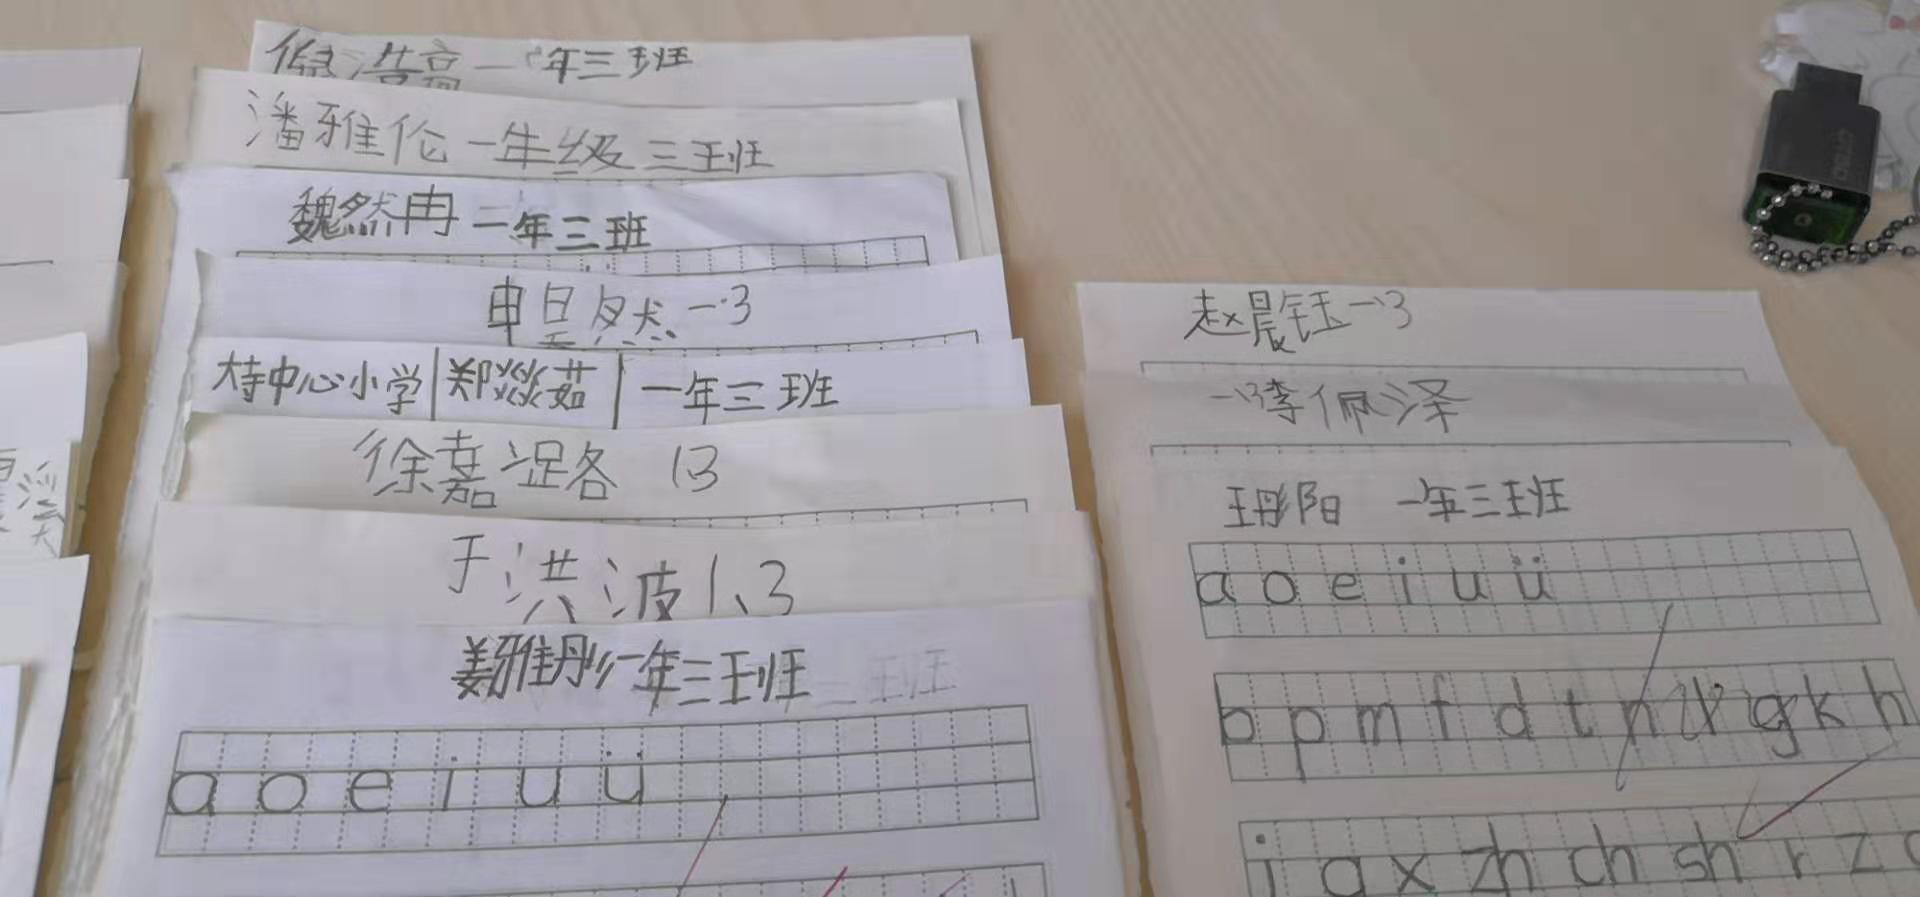 倪浩嵩一年三班
潘雅伦一年级三班
魏然冉一年三班
申昱然一·3
大寺中心小学|郑燚茹|一年三班
徐嘉浞各 13
于洪波1、3
姜雅彤一年三班
a o e i u ü
赵晨钰一3
一3李佩泽
王彤阳 一年三班
a o e i u ü
b p m f d t n l g k h
j q x zh ch sh r z